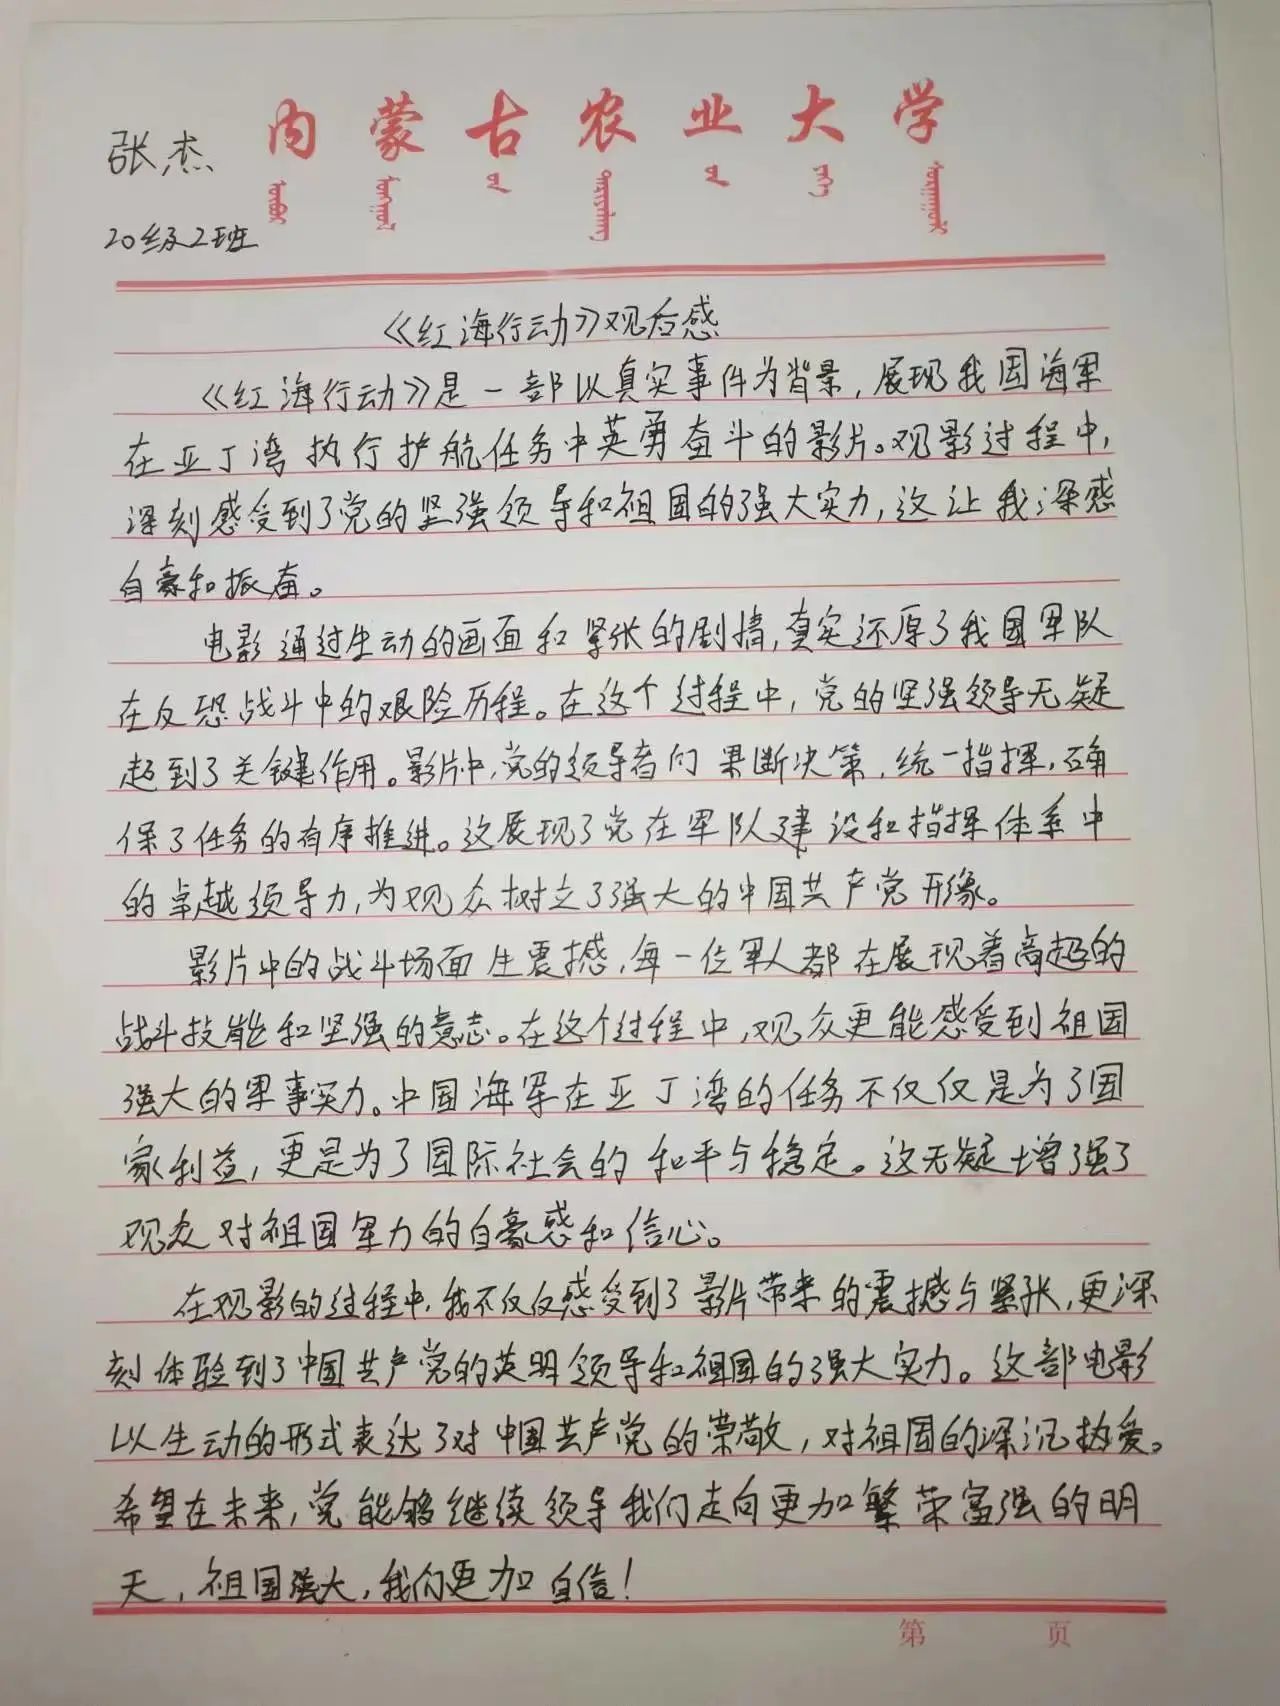 内蒙古农业大学
张杰
20级2班
《红海行动》观后感
《红海行动》是一部以真实事件为背景,展现我国海军
在亚丁湾执行护航任务中英勇奋斗的影片。观影过程中,
深刻感受到了党的坚强领导和祖国的强大实力,这让我深感
自豪和振奋。
电影通过生动的画面和紧张的剧情,真实还原了我国军队
在反恐战斗中的艰险历程。在这个过程中,党的坚强领导无疑
起到了关键作用。影片中,党的领导者们果断决策,统一指挥,确
保了任务的有序推进。这展现了党在军队建设和指挥体系中
的卓越领导力,为观众树立了强大的中国共产党形象。
影片中的战斗场面生震撼,每一位军人都在展现着高超的
战斗技能和坚强的意志。在这个过程中,观众更能感受到祖国
强大的军事实力。中国海军在亚丁湾的任务不仅仅是为了国
家利益,更是为了国际社会的和平与稳定。这无疑增强了
观众对祖国军力的自豪感和信心。
在观影的过程中,我不仅仅感受到了影片带来的震撼与紧张,更深
刻体验到了中国共产党的英明领导和祖国的强大实力。这部电影
以生动的形式表达了对中国共产党的崇敬,对祖国的深沉热爱。
希望在未来,党能够继续领导我们走向更加繁荣富强的明
天,祖国强大,我们更加自信!
第 页